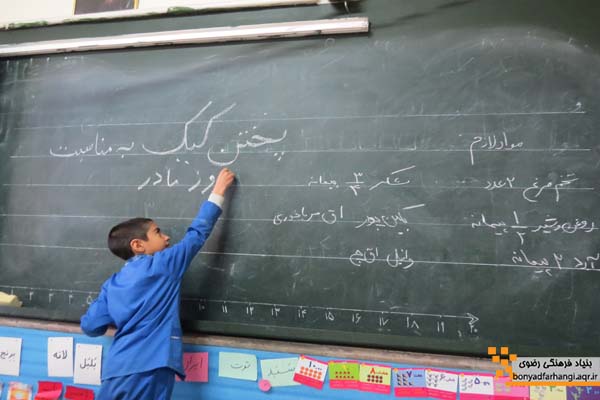 پختن کیک به مناسبت
روز مادر
مواد لازم
تخم مرغ ۲ عدد
شکر ۳/۴ پیمانه
روغن و شیر ۱/۲ پیمانه
بکینگ پودر ۱ ق مرباخوری
آرد ۲ پیمانه
وانیل ۱ ق چ
۱۰ ۱۱ ۱۲ ۱۳ ۱۴ ۱۵ ۱۶ ۱۷ ۱۸ ۱۹ ۲۰
برنج
لانه
بلبل
ایران
توت
بنیاد فرهنگی رضوی
bonyadfarhangi.aqr.ir